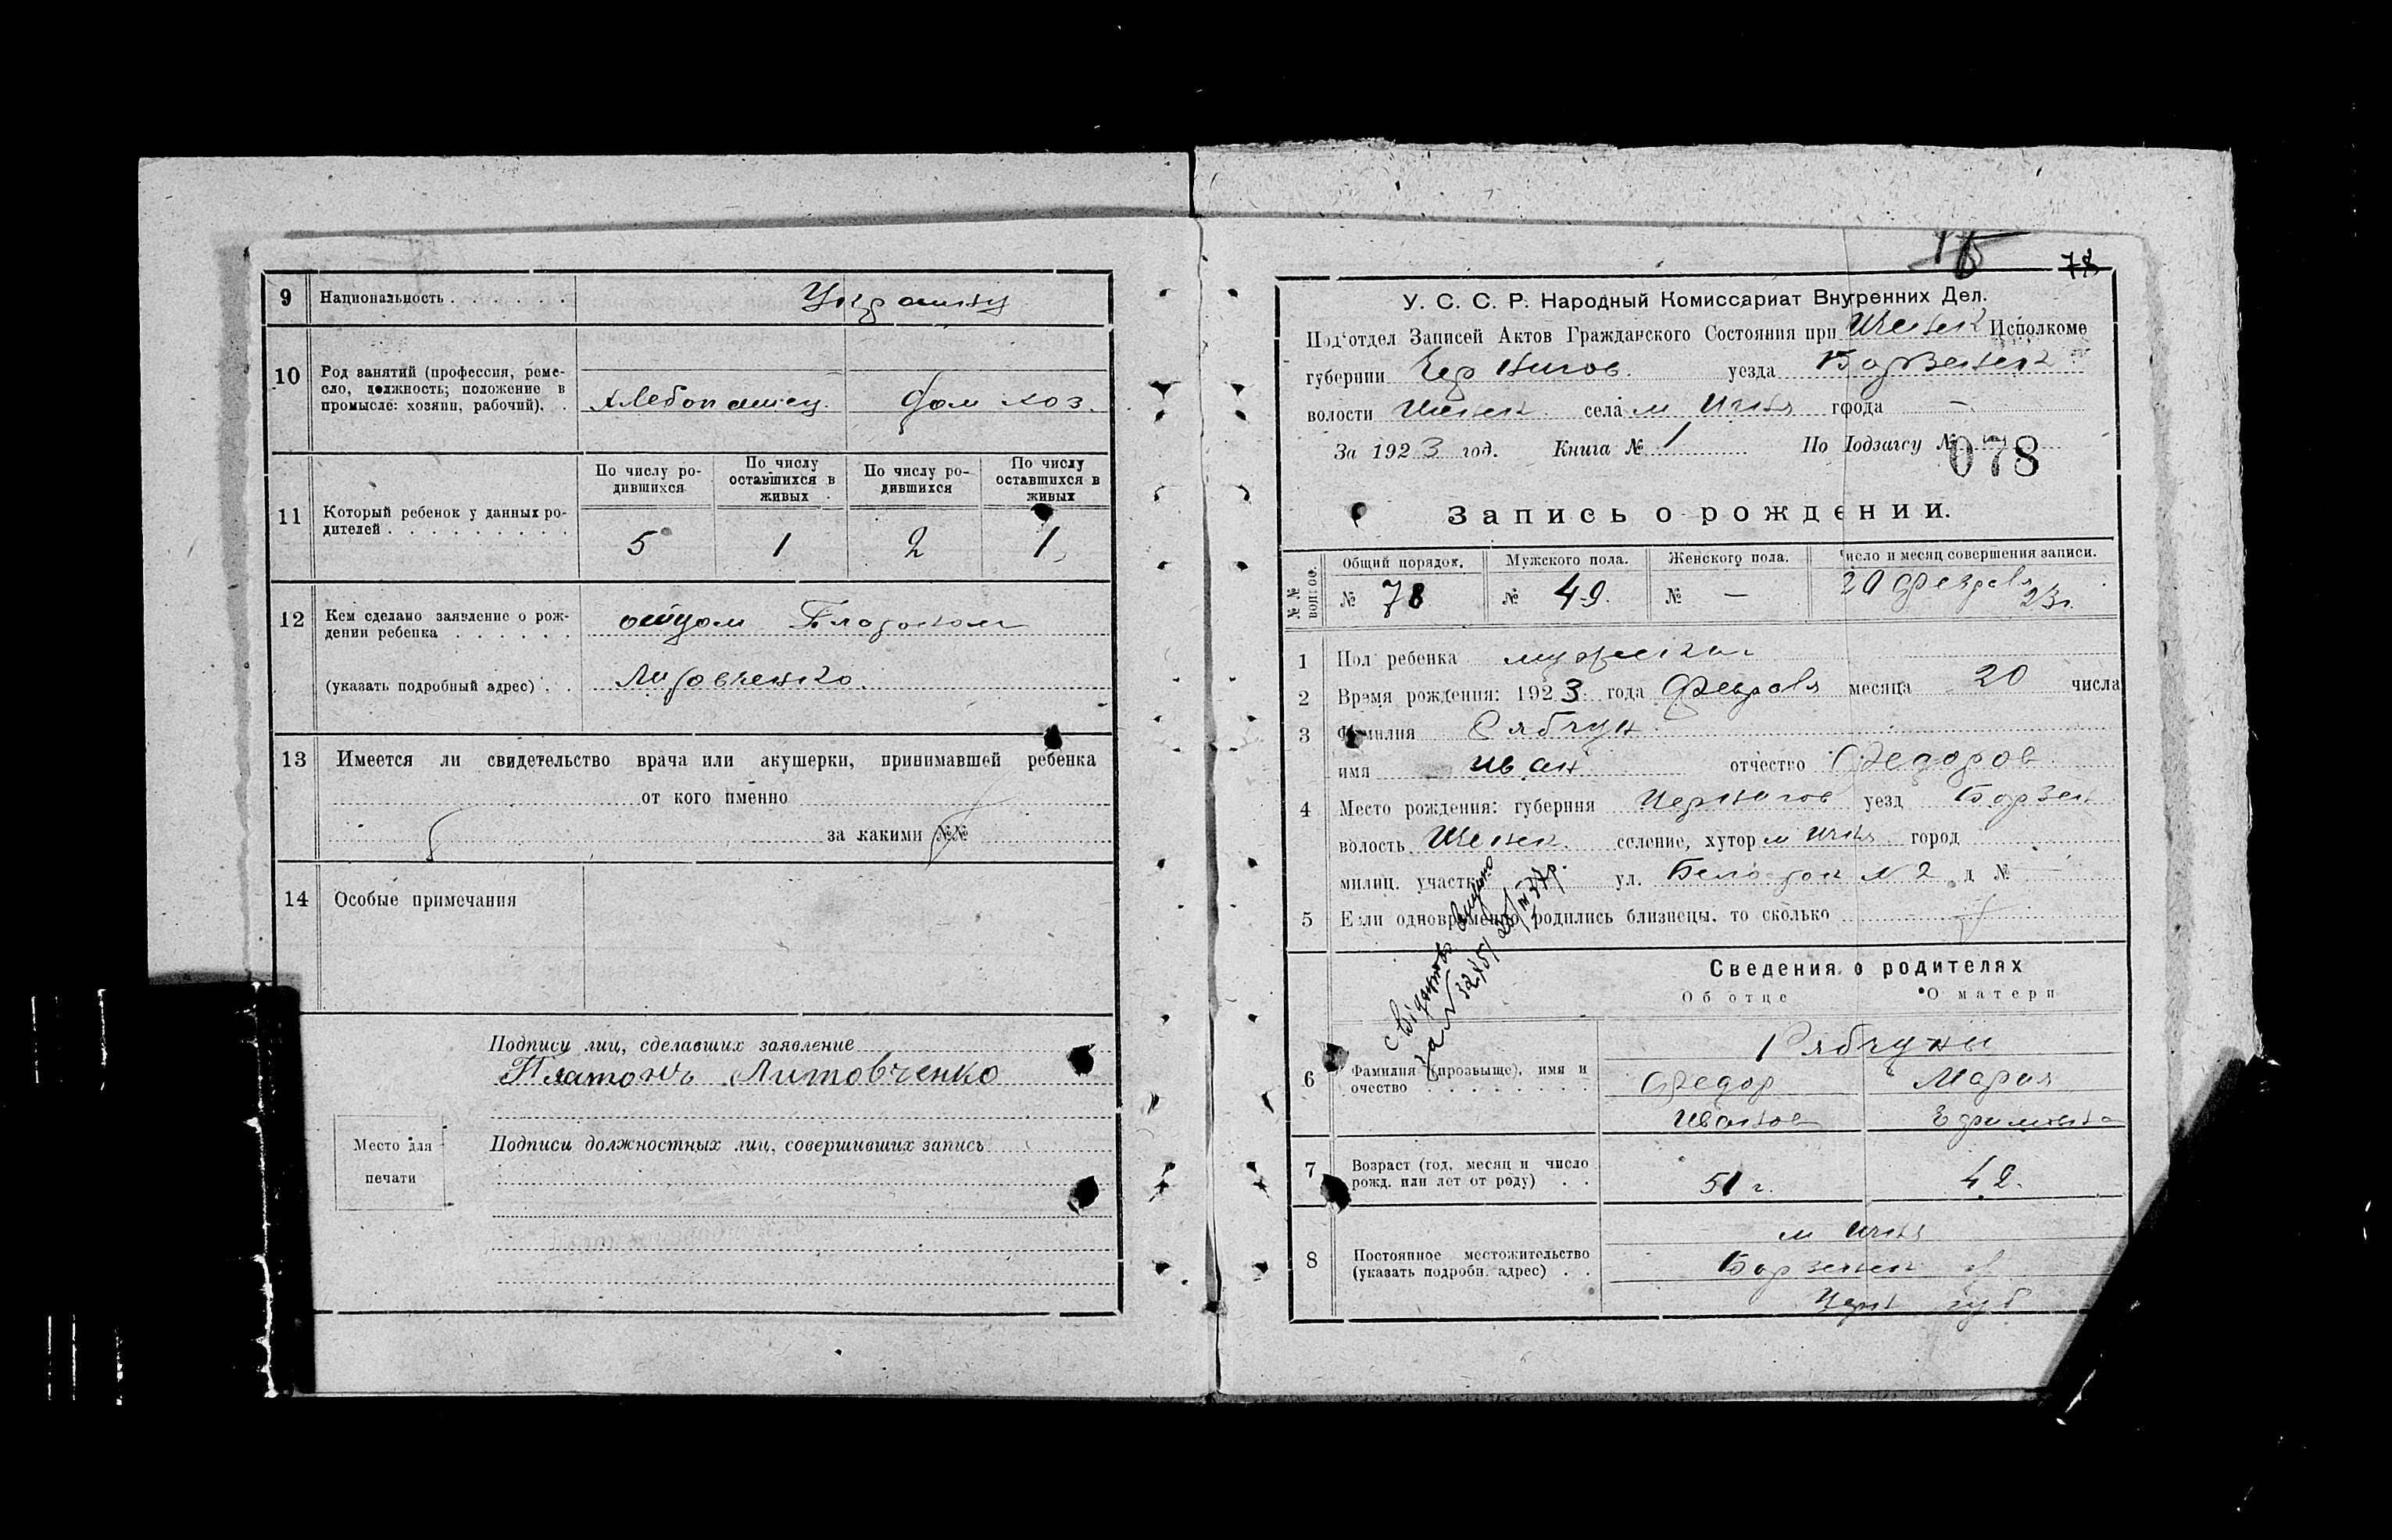 9 Национальность Украинцы
10 Род занятий (профессия, реме-
сло, должность; положение в
промысле: хозяин, рабочий).
хлебопашец дом хоз.
11 Который ребенок у данных ро-
дителей
По числу ро-
дившихся
По числу
оставшихся в
живых
По числу ро-
дившихся
По числу
оставшихся в
живых
5 1 2 1
12 Кем сделано заявление о рож-
дении ребенка отцом Платоном
(указать подробный адрес) Литовченко
13 Имеется ли свидетельство врача или акушерки, принимавшей ребенка
от кого именно
за какими №№
14 Особые примечания
Подписи лиц, сделавших заявление
Платонъ Литовченко
Место для
печати
Подписи должностных лиц, совершивших запись
78
У. С. С. Р. Народный Комиссариат Внутренних Дел.
Под'отдел Записей Актов Гражданского Состояния при Ичнск Исполкоме
губернии Чернигов. уезда Борзенск
волости Ичнск села м Ичня города —
За 1923 год. Книга № 1 По Подзагсу № 078
Запись о рождении.
Общий порядок. Мужского пола. Женского пола. Число и месяц совершения записи.
№ 78 № 49. № — 20 февраля
23г.
1 Пол ребенка мужской
2 Время рождения: 1923 года февраля месяца 20 числа
3 Фамилия Рябчун
имя Иван отчество Федоров
4 Место рождения: губерния Чернигов уезд Борзен
волость Ичнск. селение, хутор м Ичня город
милиц. участк ул. № 2 д №
5 Если одновременно родились близнецы, то сколько
Сведения о родителях
Об отце О матери
6 Фамилия (прозвище), имя и
очество
Рябчуны
Федор Мария
Иванов Ефимовна
7 Возраст (год, месяц и число
рожд. или лет от роду)
51 г. 42.
8 Постоянное местожительство
(указать подробн. адрес)
м Ичня
Борзенск
Черн губ